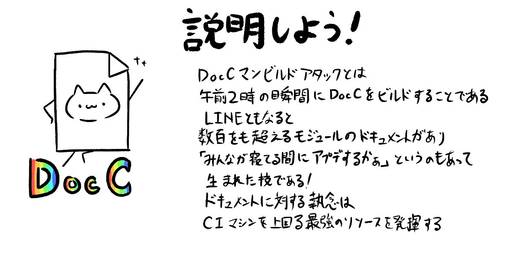 説明しよう!
DocCマンビルドアタックとは
午前2時の瞬間にDocCをビルドすることである
LINEともなると
数百をも超えるモジュールのドキュメントがあり
「みんなが寝てる間にアプデするかぁ」というのもあって
生まれた技である!
ドキュメントに対する執念は
CIマシンを上回る最強のリソースを発揮する
DocC